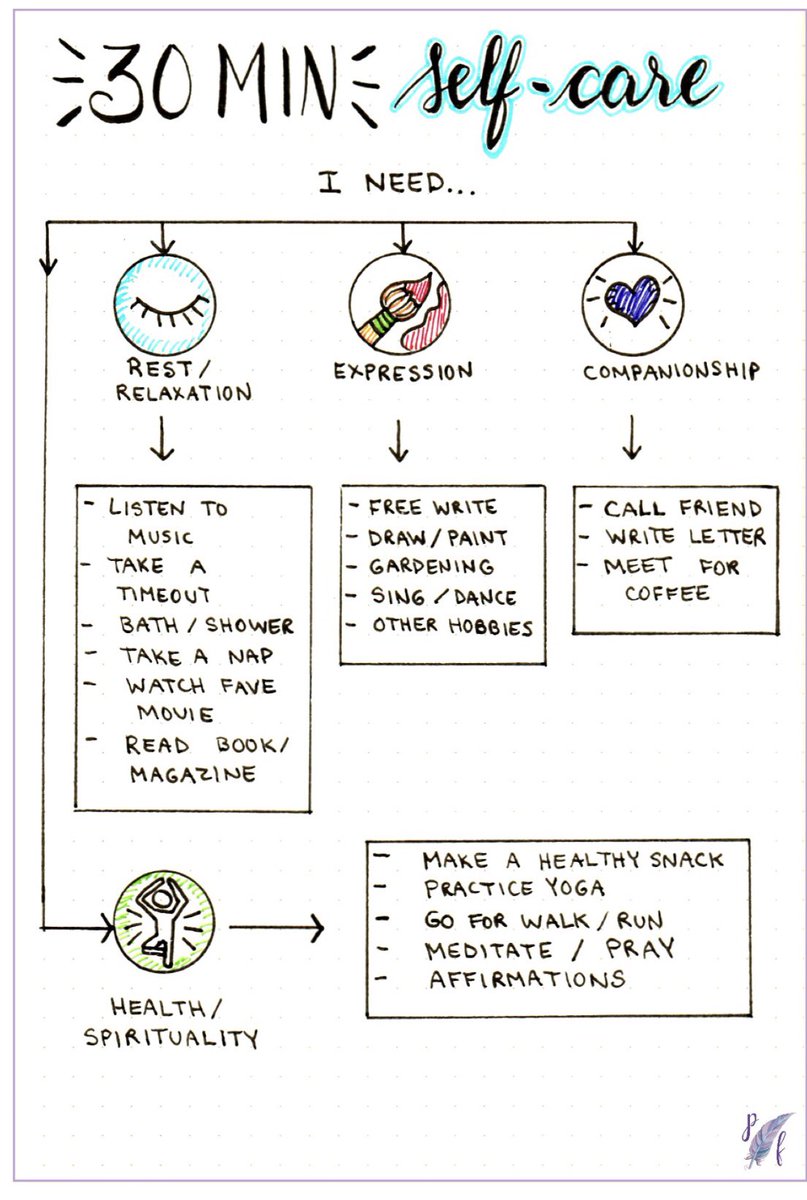 30 MIN self-care
I NEED...
REST/
RELAXATION
EXPRESSION
COMPANIONSHIP
- LISTEN TO
MUSIC
- TAKE A
TIMEOUT
- BATH / SHOWER
- TAKE A NAP
- WATCH FAVE
MOVIE
- READ BOOK/
MAGAZINE
- FREE WRITE
- DRAW / PAINT
- GARDENING
- SING / DANCE
- OTHER HOBBIES
- CALL FRIEND
- WRITE LETTER
- MEET FOR
COFFEE
HEALTH/
SPIRITUALITY
- MAKE A HEALTHY SNACK
- PRACTICE YOGA
- GO FOR WALK / RUN
- MEDITATE / PRAY
- AFFIRMATIONS
p f